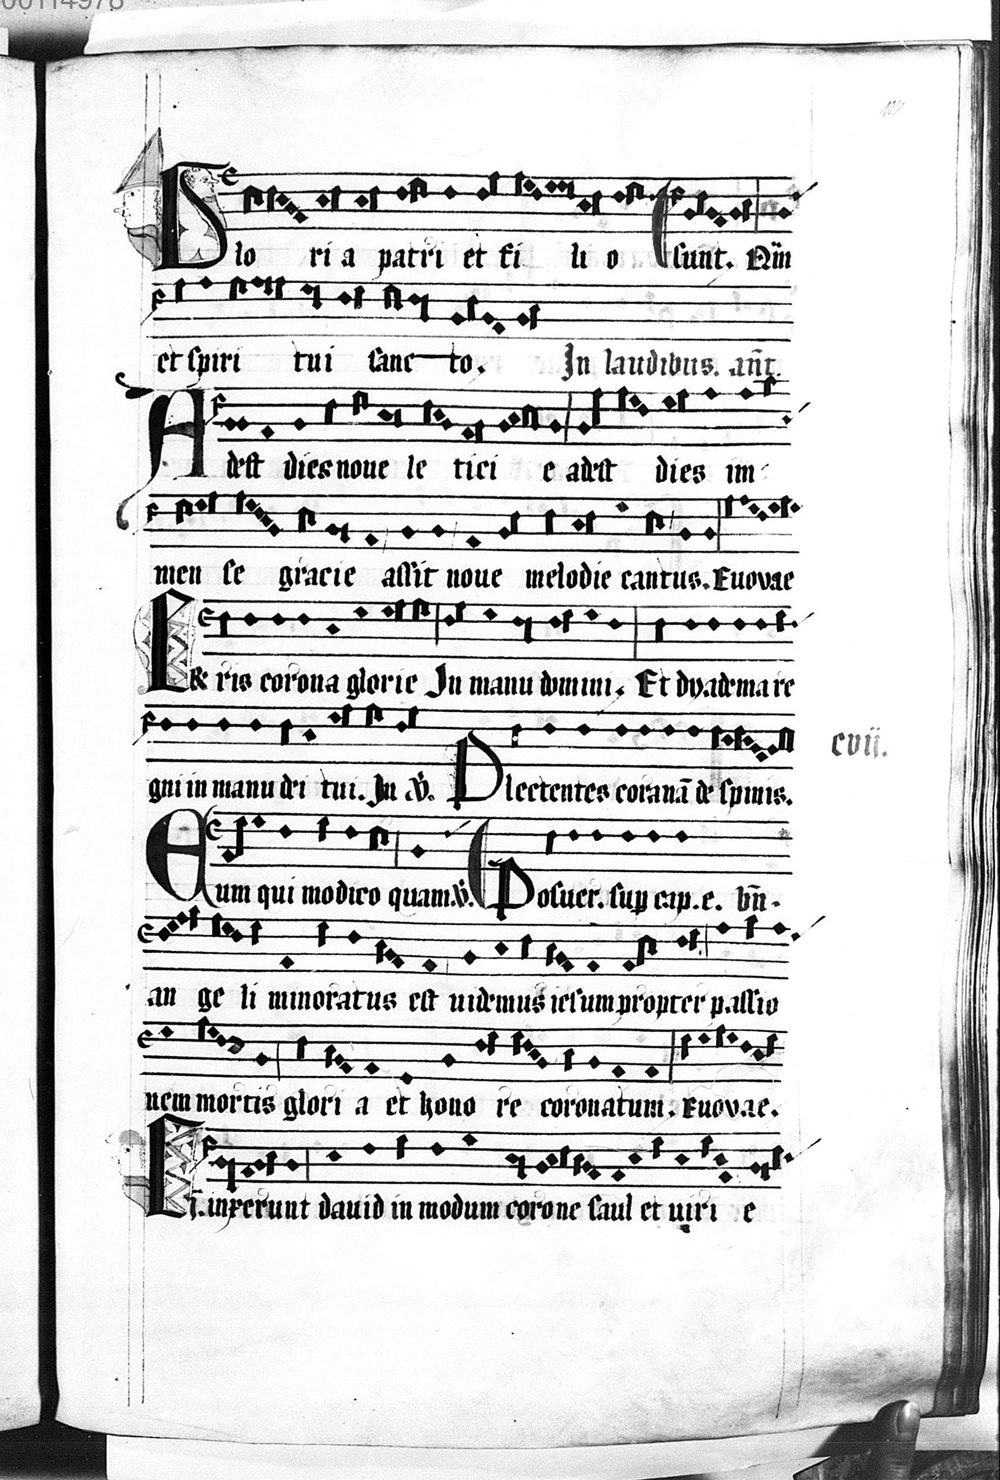 00114978
Glo ri a patri et fi li o sunt. Nim̄
et spiri tui sanc to. In laudibus. an̄t
Adest dies noue le tici e adest dies im
men se gracie assit noue melodie cantus. Euovae
E& ris corona glorie In manu domini. Et dyadema re
gni in manu dei tui. In .V. Plectentes coranā de spinis.
cvij.
Eum qui modico quam.V. Posuer. sup cap. e. bn̄.
an ge li minoratus est uidemus iesum propter passio
nem mortis glori a et hono re coronatum. Euovae.
inxerunt dauid in modum corone saul et uiri e